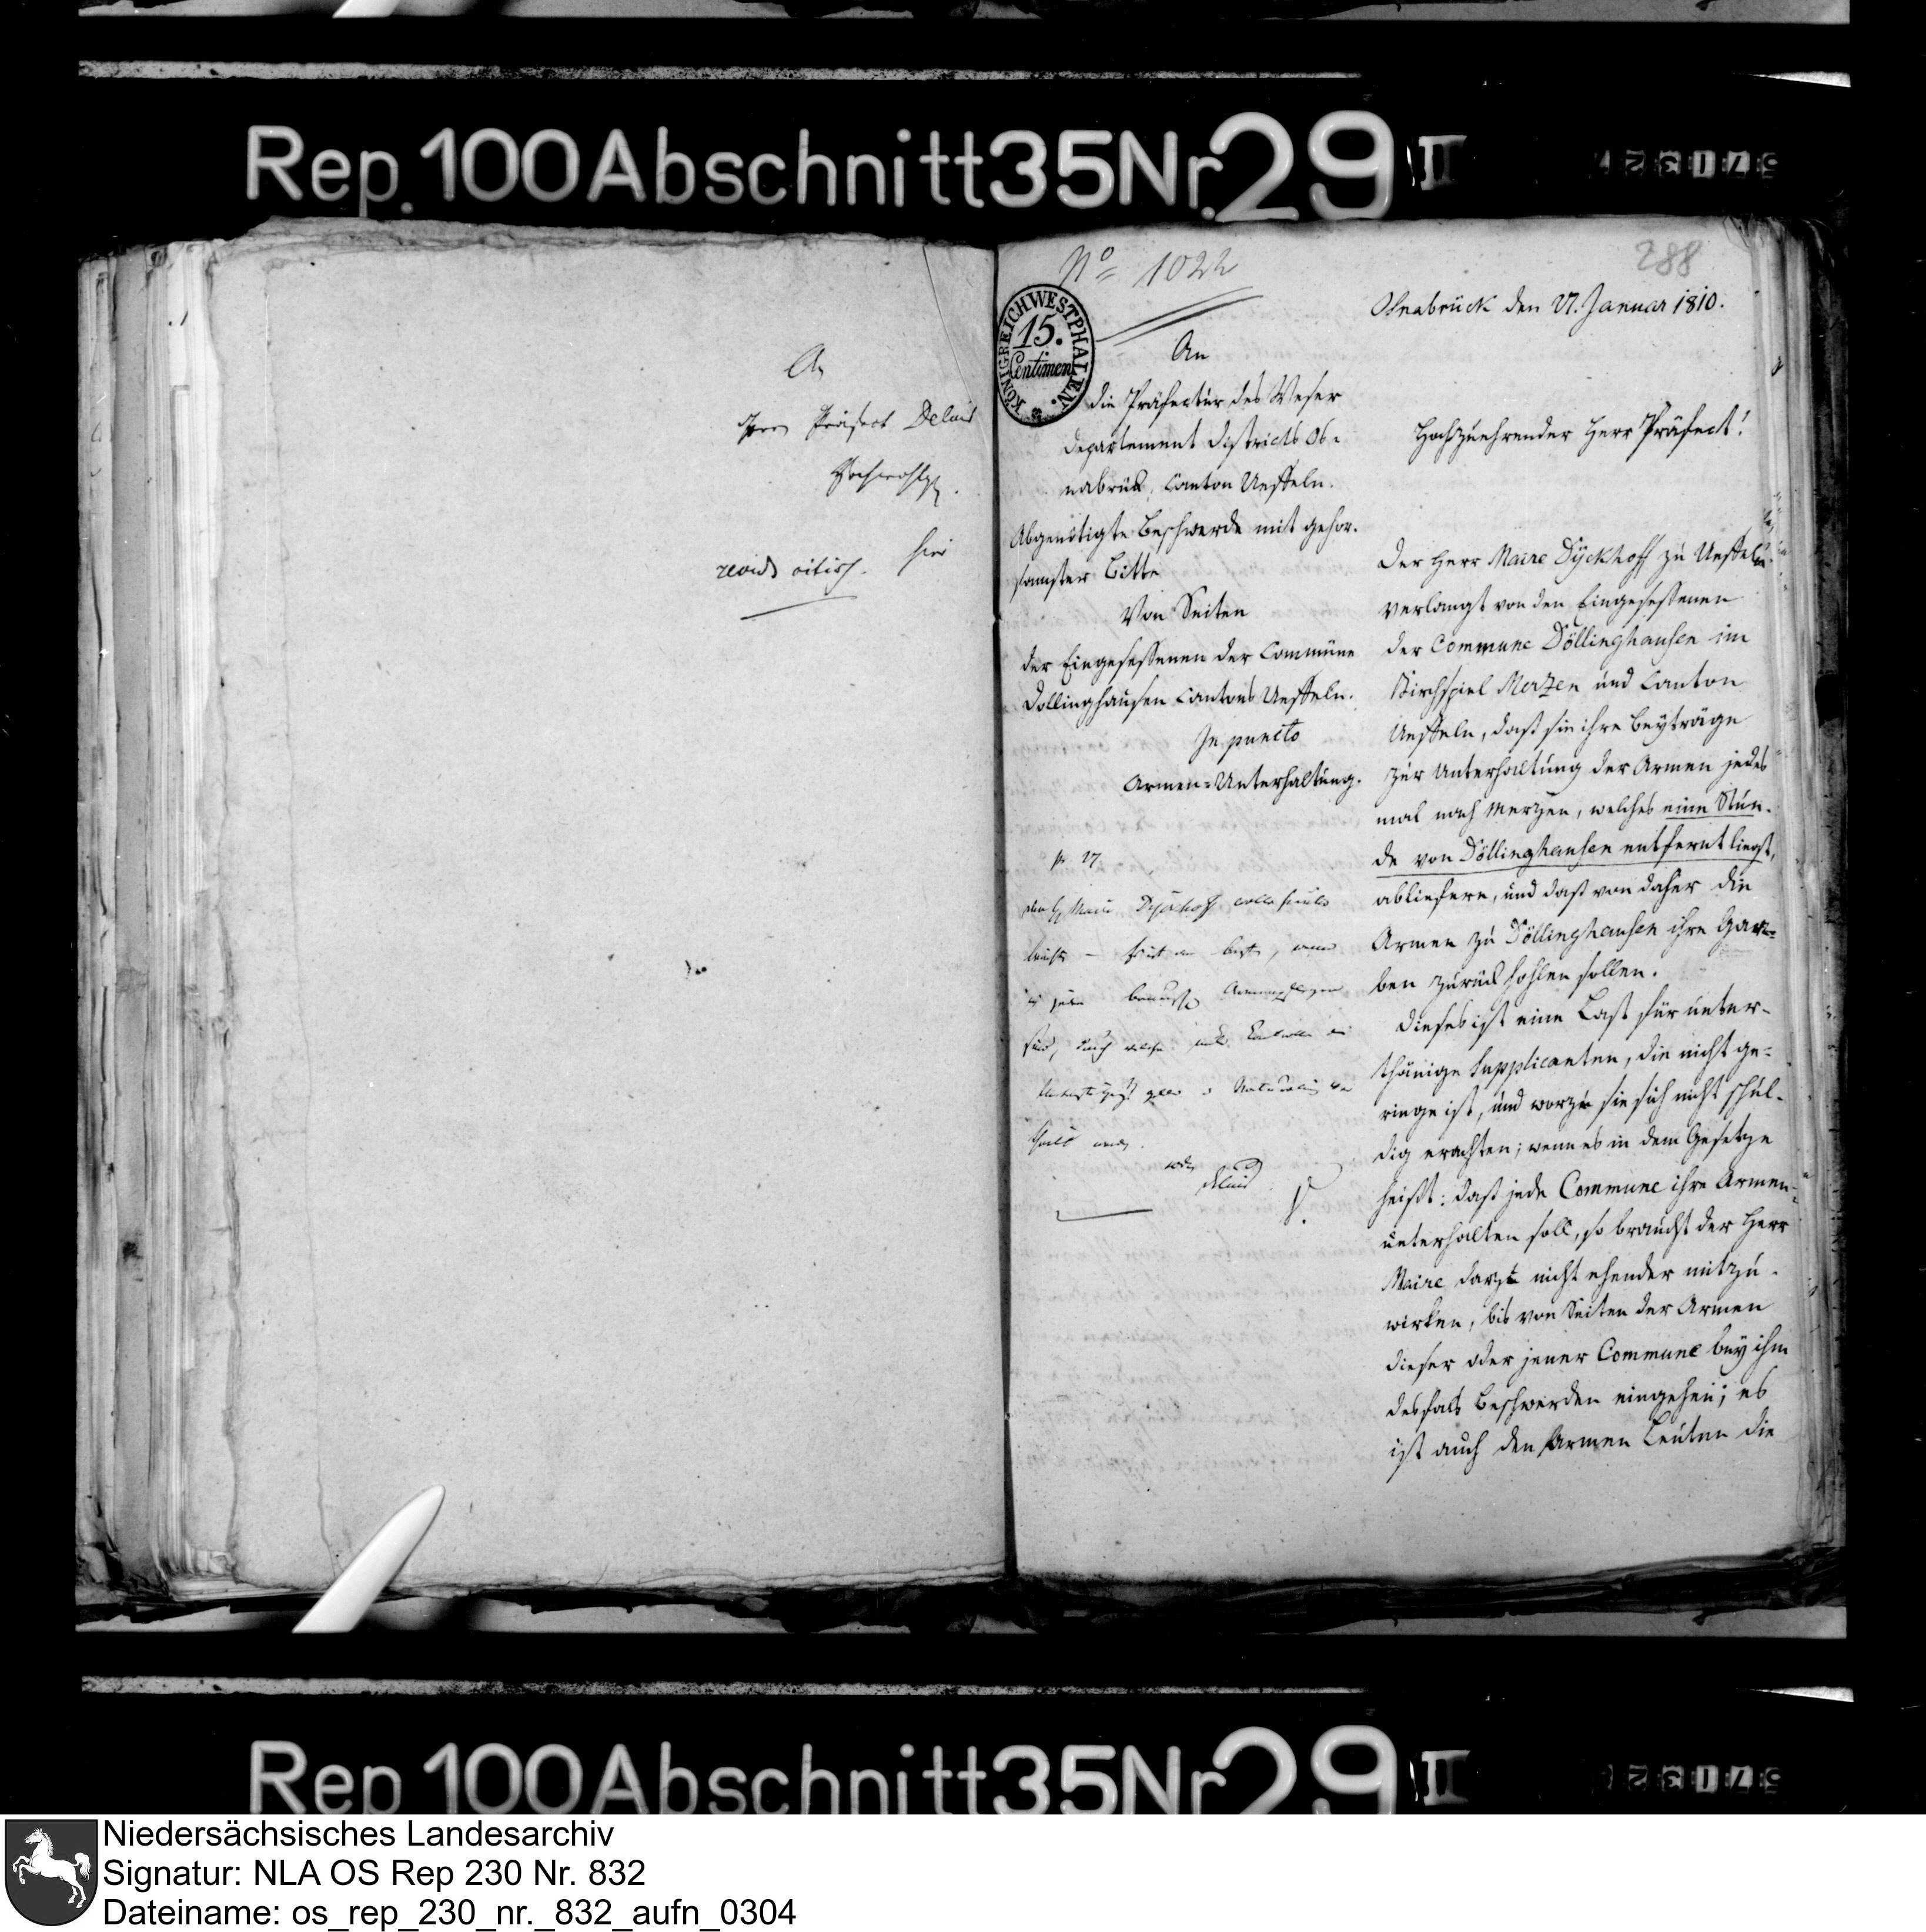 Rep. 100 Abschnitt 35 Nr. 29 I
An
Herrn Präfect Delius
Hochwohlg.
hier
288
No 1022
KÖNIGREICH WESTPHALEN.
15.
Centimen
Osnabrück den 27. Januar 1810.
An
die Präfectur des Weser
Departement Districts Os-
nabrück, Canton Ueffeln.
Abgenötigte Beschwerde mit gehor-
samster Bitte
Von Seiten
der Eingesessenen der Commüne
Döllinghausen Cantons Ueffeln.
In puncto
Armen-Unterhaltung.
pr 27
Delius
Hochzuehrender Herr Präfect!
Der Herr Maire Dÿckhoff zu Ueffeln
verlangt von den Eingesessenen
der Commune Döllinghausen im
Kirchspiel Merzen und Canton
Ueffeln, daß sie ihre Beyträge
zur Unterhaltung der Armen jedes
mal nach Merzen, welches eine Stun-
de von Döllinghausen entfernt liegt,
abliefern, und daß von daher die
Armen zu Döllinghausen ihre Gar-
ben zurück hohlen sollen.
Dieses ist eine Last für unter-
thänige Supplicanten, die nicht ge-
ringe ist, und worzu sie sich nicht schul-
dig erachten; wenn es in dem Gesetze
heißt: daß jede Commune ihre Armen
unterhalten soll, so braucht der Herr
Maire darzu nicht ehender mitzu-
wirken, bis von Seiten der Armen
dieser oder jener Commune bey ihm
desfals Beschwerden eingehen; es
ist auch den Armen Leuten die
Rep 100 Abschnitt 35 Nr 29 I
Niedersächsisches Landesarchiv
Signatur: NLA OS Rep 230 Nr. 832
Dateiname: os_rep_230_nr._832_aufn_0304